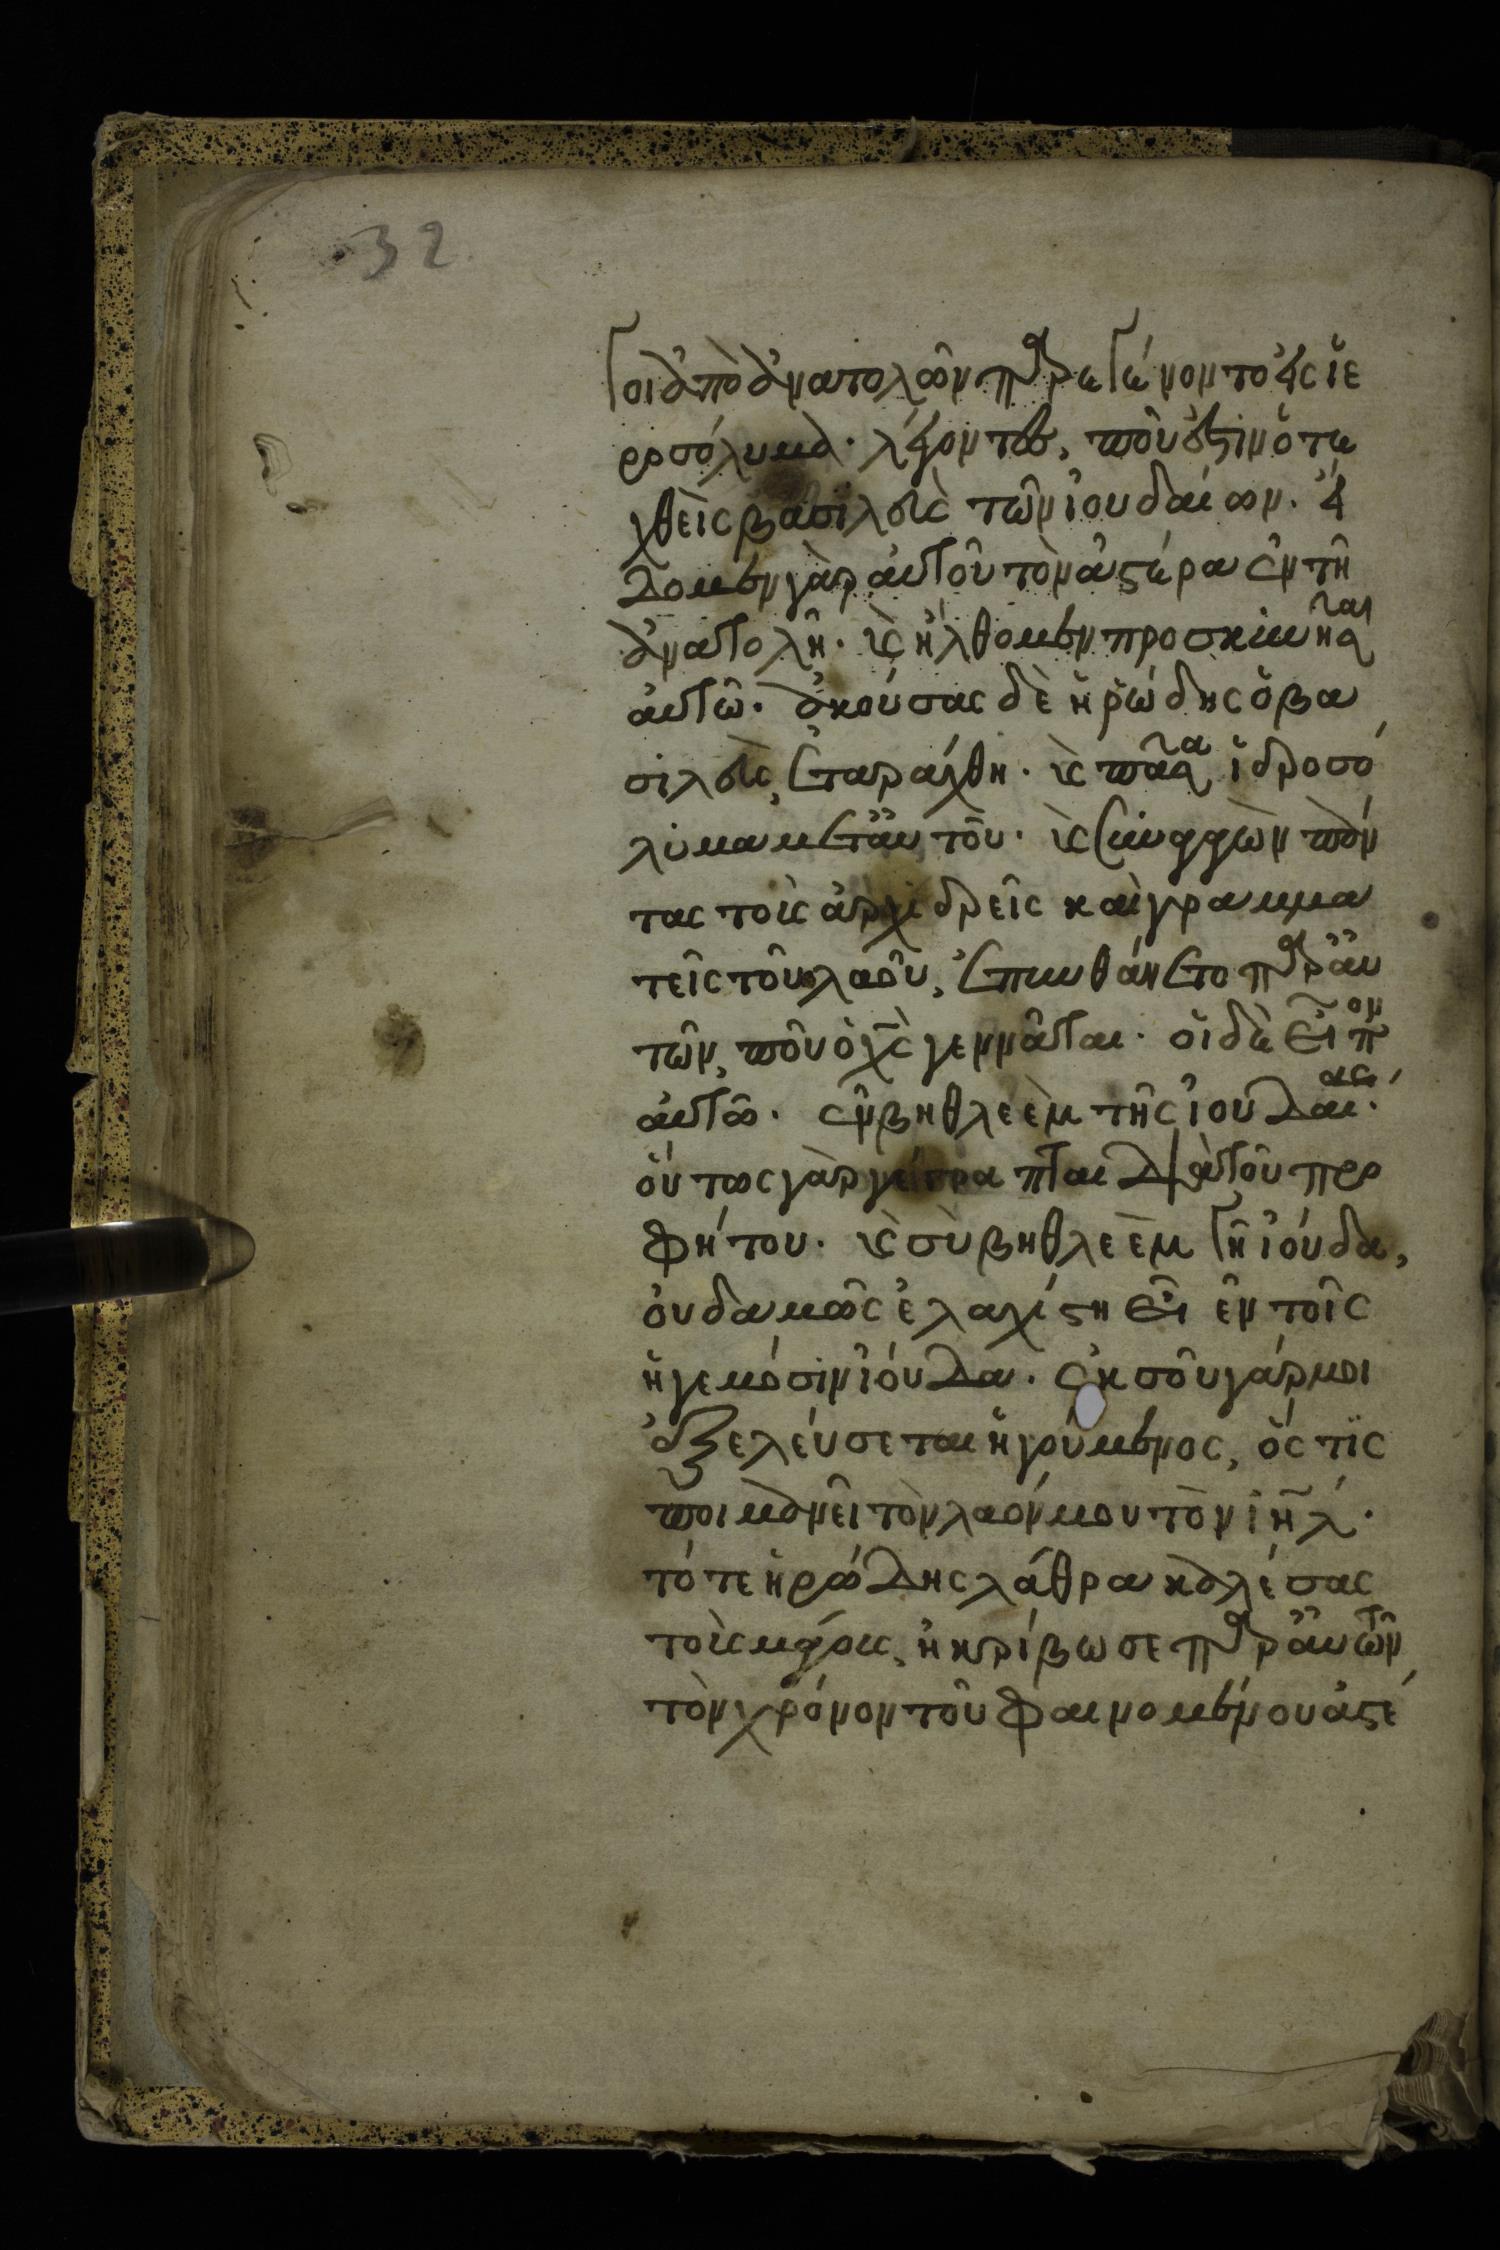 32
γοι ἀπὸ ἀνατολῶν παρεγένοντο εἰς ἱε
ροσόλυμα· λέγοντες, ποῦ ἐστὶν ὁ τε
χθεὶς βασιλεὺς τῶν ἰουδαίων. εἴ
δομεν γὰρ αὐτοῦ τὸν ἀστέρα ἐν τῆ
ἀνατολῆ. καὶ ἤλθομεν προσκυνῆσαι
αὐτῶ. ἀκούσας δὲ ἡρώδης ὁ βα
σιλεὺς, ἐταράχθη. καὶ πᾶσα ἱεροσό
λυμα μετ αὐτοῦ. καὶ συναγαγὼν πάν
τας τοὺς ἀρχιερεῖς καὶ γραμμα
τεῖς τοῦ λαοῦ, ἐπυνθάνετο παρ αὐ
τῶν, ποῦ ὁ χς γεννᾶται. οἱ δὲ εἶπον
αὐτῶ. ἐν βηθλεὲμ τῆς ἰουδαίας.
οὕτως γὰρ γέγραπται διὰ τοῦ προ
φήτου. καὶ σὺ βηθλεὲμ γῆ ἰούδα,
οὐδαμῶς ἐλαχίστη εἶ ἐν τοῖς
ἡγεμόσιν ἰούδα. ἐκ σοῦ γάρ μοι
ἐξελεύσεται ἡγούμενος, ὅς τις
ποιμανεῖ τὸν λαόν μου τὸν ιηλ.
τότε ἡρώδης λάθρα καλέσας
τοὺς μάγους, ἠκρίβωσε παρ αὐτῶν
τὸν χρόνον τοῦ φαινομένου ἀστέ